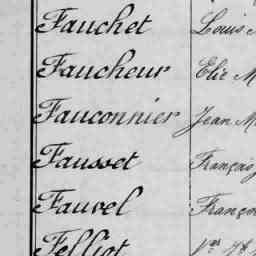 Fauchet Louis
Faucheur Elie M
Fauconnier Jean M
Fausset François
Fauvel Franço
Felliot